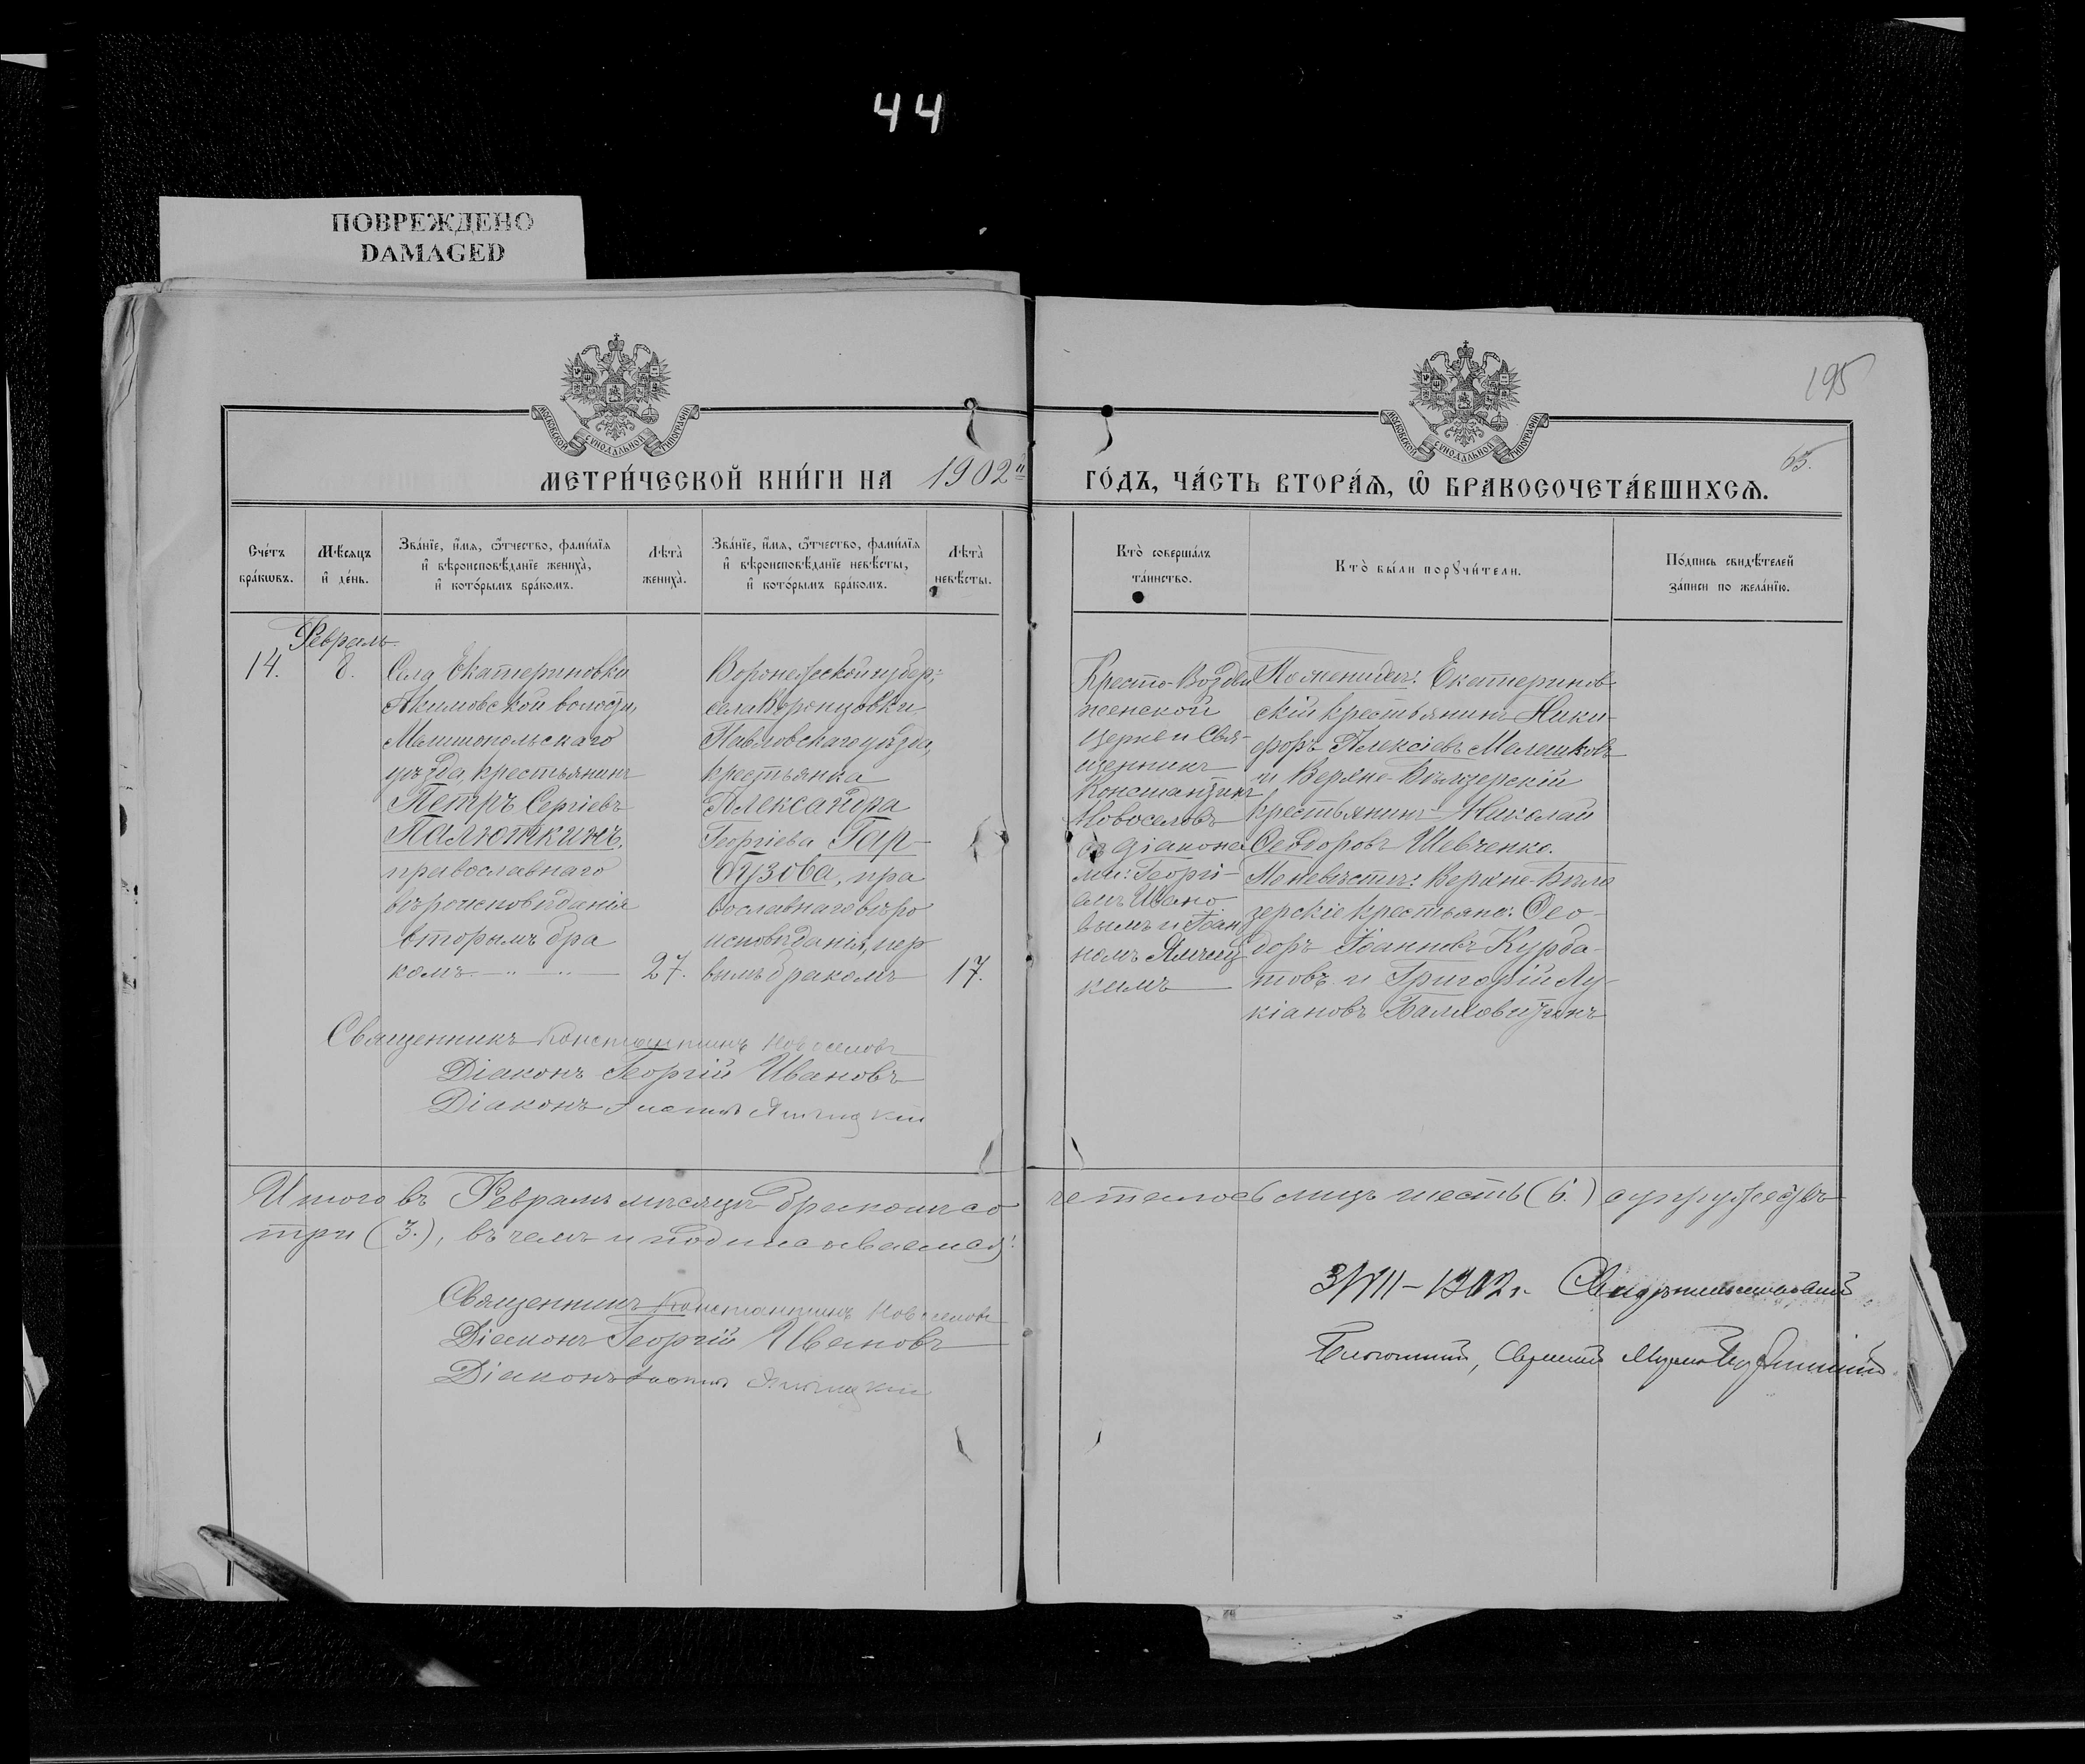 44
ПОВРЕЖДЕНО
DAMAGED
195
МОСКОВСКОЙ СУНОДАЛЬНОЙ ТИПОГРАФІИ
МОСКОВСКОЙ СУНОДАЛЬНОЙ ТИПОГРАФІИ
65.
МЕТРИ́ЧЕСКОЙ КНИ́ГИ НА 1902й
ГО́ДЪ, ЧА́СТЬ ВТОРА́Ѧ, Ѽ БРАКОСОЧЕТА́ВШИХСѦ.
Сче́тъ бра́кωвъ.
Мѣ́сяцъ и́ де́нь.
Зва́нїе, и҆́мѧ, ѿтчество, фами́лїѧ
и҆ вѣроисповѣ́данїе жениха̀,
и҆ кото́рымъ бра́комъ.
Лѣ́та̀
жениха̀.
Зва́нїе, и҆́мѧ, ѿтчество, фами́лїѧ
и҆ вѣроисповѣ́данїе невѣ́сты,
и҆ кото́рымъ бра́комъ.
Лѣ́та̀
невѣ́сты.
Кто̀ соверша́лъ
та́инство.
Кто̀ бы́ли порꙋчи́тели.
По́дпись свидѣ́телей
за́писи по жела́нїю.
Февраль.
14. 8.
Села Екатериновки
Акимовской волости,
Мелитопольскаго
уѣзда, крестьянинъ
Петръ Сергіевъ
Палюткинъ,
православнаго
вѣроисповѣданія
вторымъ бра
комъ.
27.
Воронежской губер:
села Воронцовки
Павловскаго уѣзда,
крестьянка
Александра
Георгіева Гар-
бузова, пра
вославнаго вѣро
исповѣданія, пер
вымъ бракомъ
17.
Кресто-Воздви
женской
церкви Свя-
щенникъ
Константинъ
Новоселовъ
съ діакона
ми: Георгі-
емъ Ивано
вымъ и Іоан
номъ
кимъ
По женихѣ: Екатеринов
скій крестьянинъ Ники-
форъ Алексіевъ Мелешковъ
и Верхне-Бѣлозерскій
крестьянинъ Николай
Ѳеодоровъ Шевченко.
По невѣстѣ: Верхне-Бѣло
зерскіе крестьяне: Ѳео-
доръ Іоанновъ Курба-
товъ и Григорій Лу-
кіановъ
Священникъ Константинъ Новоселовъ
Діаконъ Георгій Ивановъ
Діаконъ
Итого въ Февралѣ мѣсяцѣ бракомъ со
четалось лицъ шесть (6.) супружествъ
три (3.), въ чемъ и подписываемся:
Священникъ Константинъ Новоселовъ
Діаконъ Георгій Ивановъ
Діаконъ
1902 г.